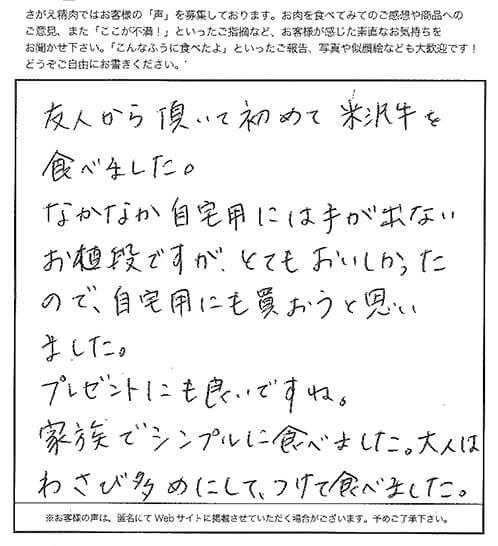 さがえ精肉ではお客様の「声」を募集しております。お肉を食べてみてのご感想や商品への
ご意見、また「ここが不満！」といったご指摘など、お客様が感じた素直なお気持ちを
お聞かせ下さい。「こんなふうに食べたよ」といったご報告、写真や似顔絵なども大歓迎です！
どうぞご自由にお書きください。
友人から頂いて初めて米沢牛を
食べました。
なかなか自宅用には手が出ない
お値段ですが、とてもおいしかった
ので、自宅用にも買おうと思い
ました。
プレゼントにも良いですね。
家族でシンプルに食べました。大人は
わさび多めにして、つけて食べました。
※お客様の声は、匿名にてWebサイトに掲載させていただく場合がございます。予めご了承下さい。